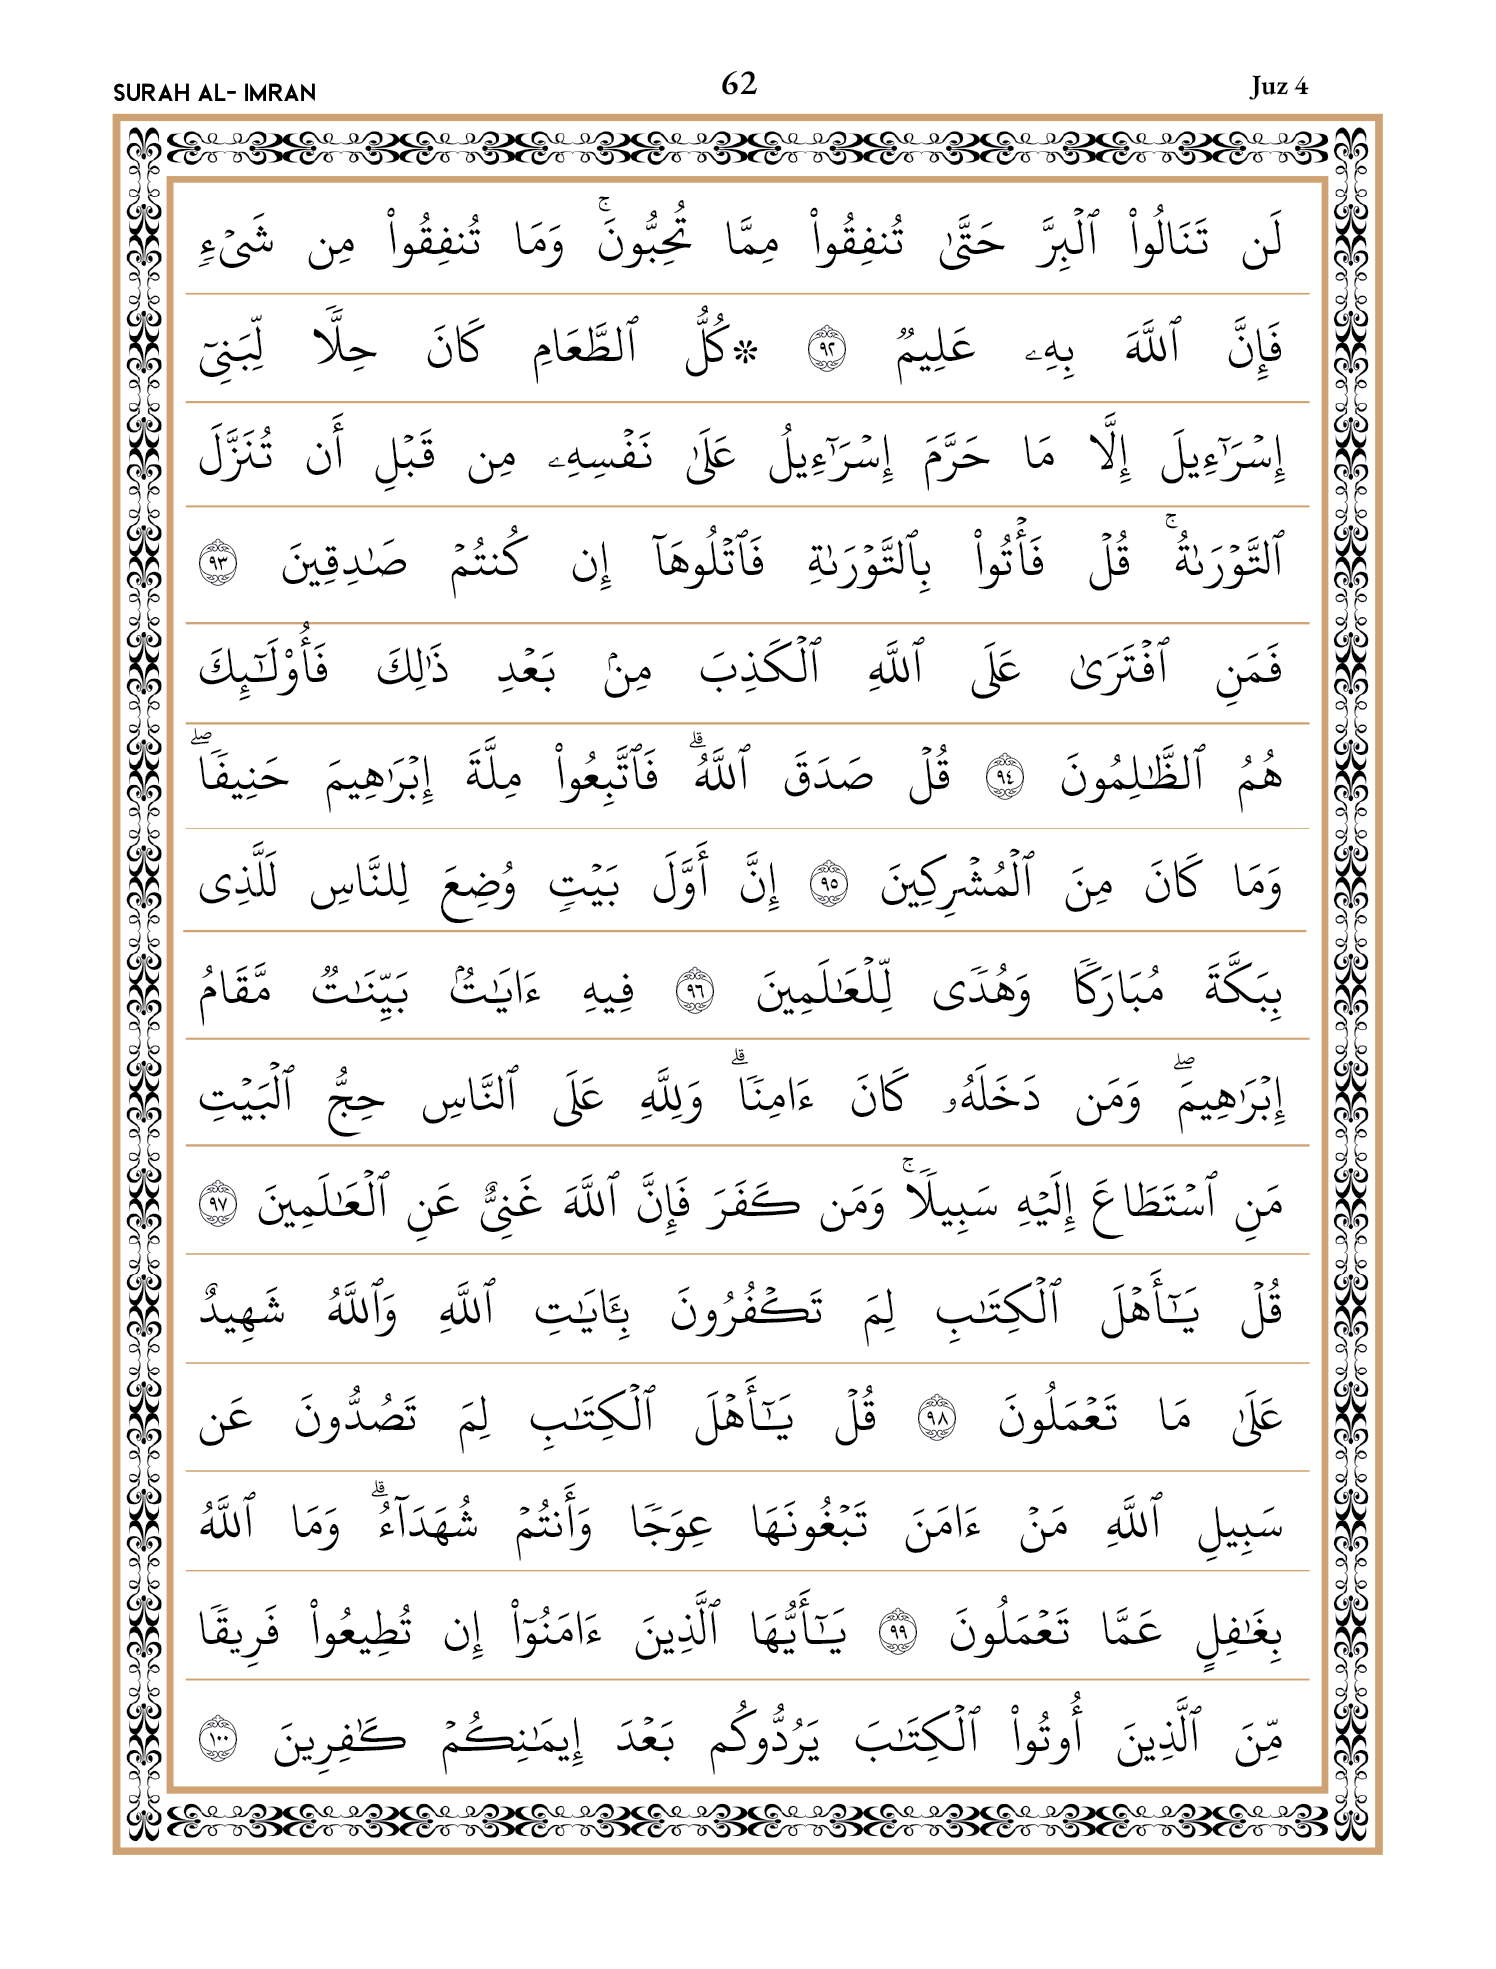 SURAH AL- IMRAN 62 Juz 4
لَن تَنَالُوا۟ ٱلْبِرَّ حَتَّىٰ تُنفِقُوا۟ مِمَّا تُحِبُّونَ ۚ وَمَا تُنفِقُوا۟ مِن شَىْءٍ
فَإِنَّ ٱللَّهَ بِهِۦ عَلِيمٌ ٩٢ * كُلُّ ٱلطَّعَامِ كَانَ حِلًّا لِّبَنِىٓ
إِسْرَٰٓءِيلَ إِلَّا مَا حَرَّمَ إِسْرَٰٓءِيلُ عَلَىٰ نَفْسِهِۦ مِن قَبْلِ أَن تُنَزَّلَ
ٱلتَّوْرَىٰةُ ۚ قُلْ فَأْتُوا۟ بِٱلتَّوْرَىٰةِ فَٱتْلُوهَآ إِن كُنتُمْ صَـٰدِقِينَ ٩٣
فَمَنِ ٱفْتَرَىٰ عَلَى ٱللَّهِ ٱلْكَذِبَ مِنۢ بَعْدِ ذَٰلِكَ فَأُو۟لَـٰٓئِكَ
هُمُ ٱلظَّـٰلِمُونَ ٩٤ قُلْ صَدَقَ ٱللَّهُ ۗ فَٱتَّبِعُوا۟ مِلَّةَ إِبْرَٰهِيمَ حَنِيفًا ۖ
وَمَا كَانَ مِنَ ٱلْمُشْرِكِينَ ٩٥ إِنَّ أَوَّلَ بَيْتٍ وُضِعَ لِلنَّاسِ لَلَّذِى
بِبَكَّةَ مُبَارَكًا وَهُدًى لِّلْعَـٰلَمِينَ ٩٦ فِيهِ ءَايَـٰتٌۢ بَيِّنَـٰتٌ مَّقَامُ
إِبْرَٰهِيمَ ۖ وَمَن دَخَلَهُۥ كَانَ ءَامِنًا ۗ وَلِلَّهِ عَلَى ٱلنَّاسِ حِجُّ ٱلْبَيْتِ
مَنِ ٱسْتَطَاعَ إِلَيْهِ سَبِيلًا ۚ وَمَن كَفَرَ فَإِنَّ ٱللَّهَ غَنِىٌّ عَنِ ٱلْعَـٰلَمِينَ ٩٧
قُلْ يَـٰٓأَهْلَ ٱلْكِتَـٰبِ لِمَ تَكْفُرُونَ بِـَٔايَـٰتِ ٱللَّهِ وَٱللَّهُ شَهِيدٌ
عَلَىٰ مَا تَعْمَلُونَ ٩٨ قُلْ يَـٰٓأَهْلَ ٱلْكِتَـٰبِ لِمَ تَصُدُّونَ عَن
سَبِيلِ ٱللَّهِ مَنْ ءَامَنَ تَبْغُونَهَا عِوَجًا وَأَنتُمْ شُهَدَآءُ ۗ وَمَا ٱللَّهُ
بِغَـٰفِلٍ عَمَّا تَعْمَلُونَ ٩٩ يَـٰٓأَيُّهَا ٱلَّذِينَ ءَامَنُوٓا۟ إِن تُطِيعُوا۟ فَرِيقًا
مِّنَ ٱلَّذِينَ أُوتُوا۟ ٱلْكِتَـٰبَ يَرُدُّوكُم بَعْدَ إِيمَـٰنِكُمْ كَـٰفِرِينَ ١٠٠